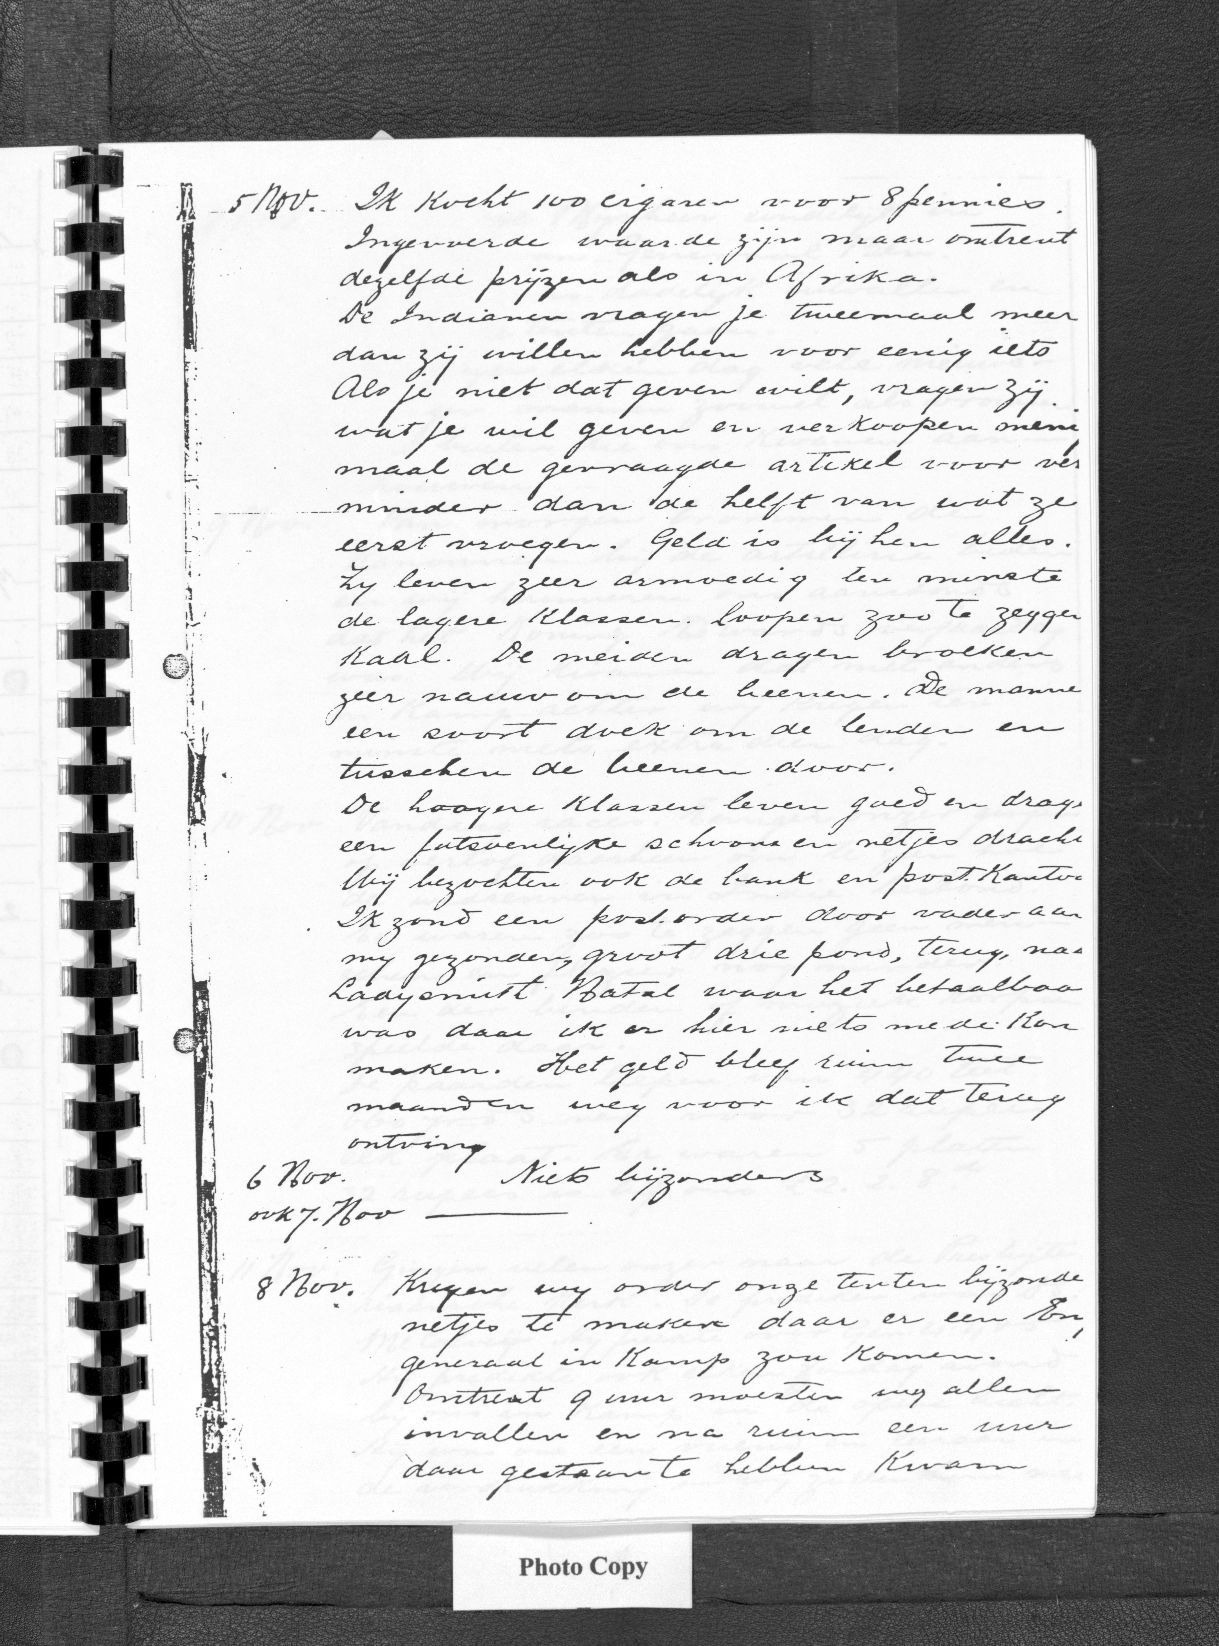 5 Nov. Ik kocht 100 cigaren voor 8 pennies.
Ingevoerde waarde zijn maar omtrent
dezelfde prijzen als in Afrika.
De Indianen vragen je tweemaal meer
dan zij willen hebben voor eenig iets
Als je niet dat geven wilt, vragen zij
wat je wil geven en verkoopen meni
maal de gevraagde artikel voor ver
minder dan de helft van wat ze
eerst vroegen. Geld is bij hen alles.
Zy leven zeer armoedig ten minste
de lagere klassen. loopen zoo te zeggen
kaal. De meiden dragen broeken
zeer nauw om de beenen. De manne
een soort doek om de lenden en
tusschen de beenen door.
De hoogere klassen leven goed en drage
een fatsoenlyke schoone en netjes dracht
Wij bezochten ook de bank en post kanto
Ik zond een post.order door vader aan
my gezonden, groot drie pond, terug, na
Ladysmith Natal waar het betaalbaa
was daar ik er hier niets mede kon
maken. Het geld bleef ruim twee
maanden weg voor ik dat terug
ontving
6 Nov. Niets bijzonders
ook 7. Nov
8 Nov. Kregen wy order onze tenten bijzonde
netjes te maken daar er een En
generaal in kamp zou komen.
Omtrent 9 uur moesten wy allen
invallen en na ruim een uur
daar gestaan te hebben kwam
Photo Copy